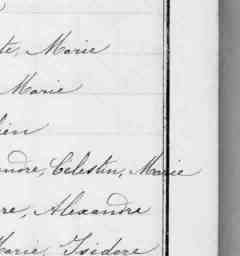 te, Marie
Marie
ien
andre, Celestin, Marie
re, Alexandre
Marie, Isidore